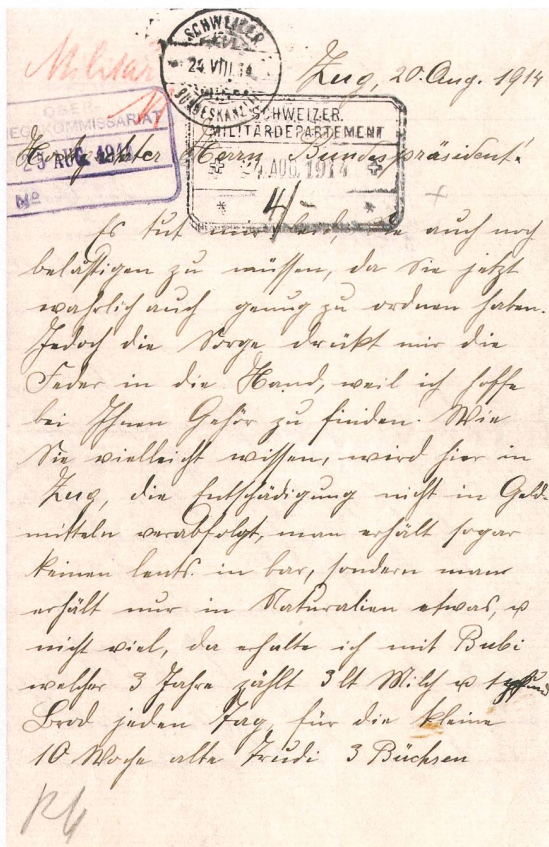 Militär
SCHWEIZER.
24. VIII. 14
BUNDESKANZLEI
Zug, 20. Aug. 1914
OBER-
KRIEGSKOMMISSARIAT
25 AUG. 1914
No
SCHWEIZER.
MILITÄRDEPARTEMENT
24. AUG. 1914
4/-
Hochgeehrter Herrn Bundespräsident!
Es tut mir leid, Sie auch noch
belästigen zu müssen, da Sie jetzt
wahrlich auch genug zu ordnen haben.
Jedoch die Sorge drükt mir die
Feder in die Hand, weil ich hoffe
bei Ihnen Gehör zu finden. Wie
Sie vielleicht wissen, wird hier in
Zug, die Entschädigung nicht in Geld
mitteln verabfolgt, man erhält sogar
keinen Cents. in bar, sondern man
erhält nur in Naturalien etwas, u
nicht viel, da erhalte ich mit Bubi
welcher 3 Jahre zählt 3 lt Milch u 1 Pfund
Brod jeden Tag, für die kleine
10 Woche alte Trudi 3 Büchsen